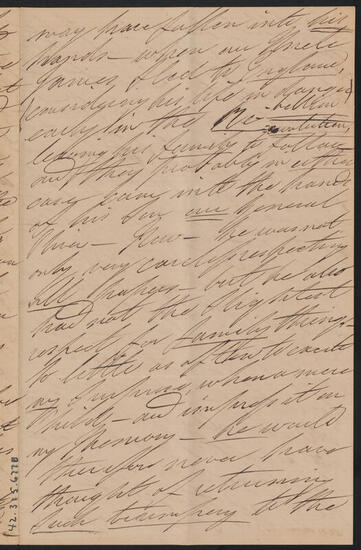 may have fallen into his
hands — when our Uncle
James fled to England,
(considering his life in danger)
early in the Revolution,
leaving his family to follow
and they probably in either
case came into the hands
of his Son our General
He was not
only very careless respecting
All papers — but he also
had not the slightest
respect for family things.
So little as often to excite
my surprise, when a mere
Child — and impress it on
my Memory — He would
therefore never have
thought of returning
such trumpery to the
42.315.677B